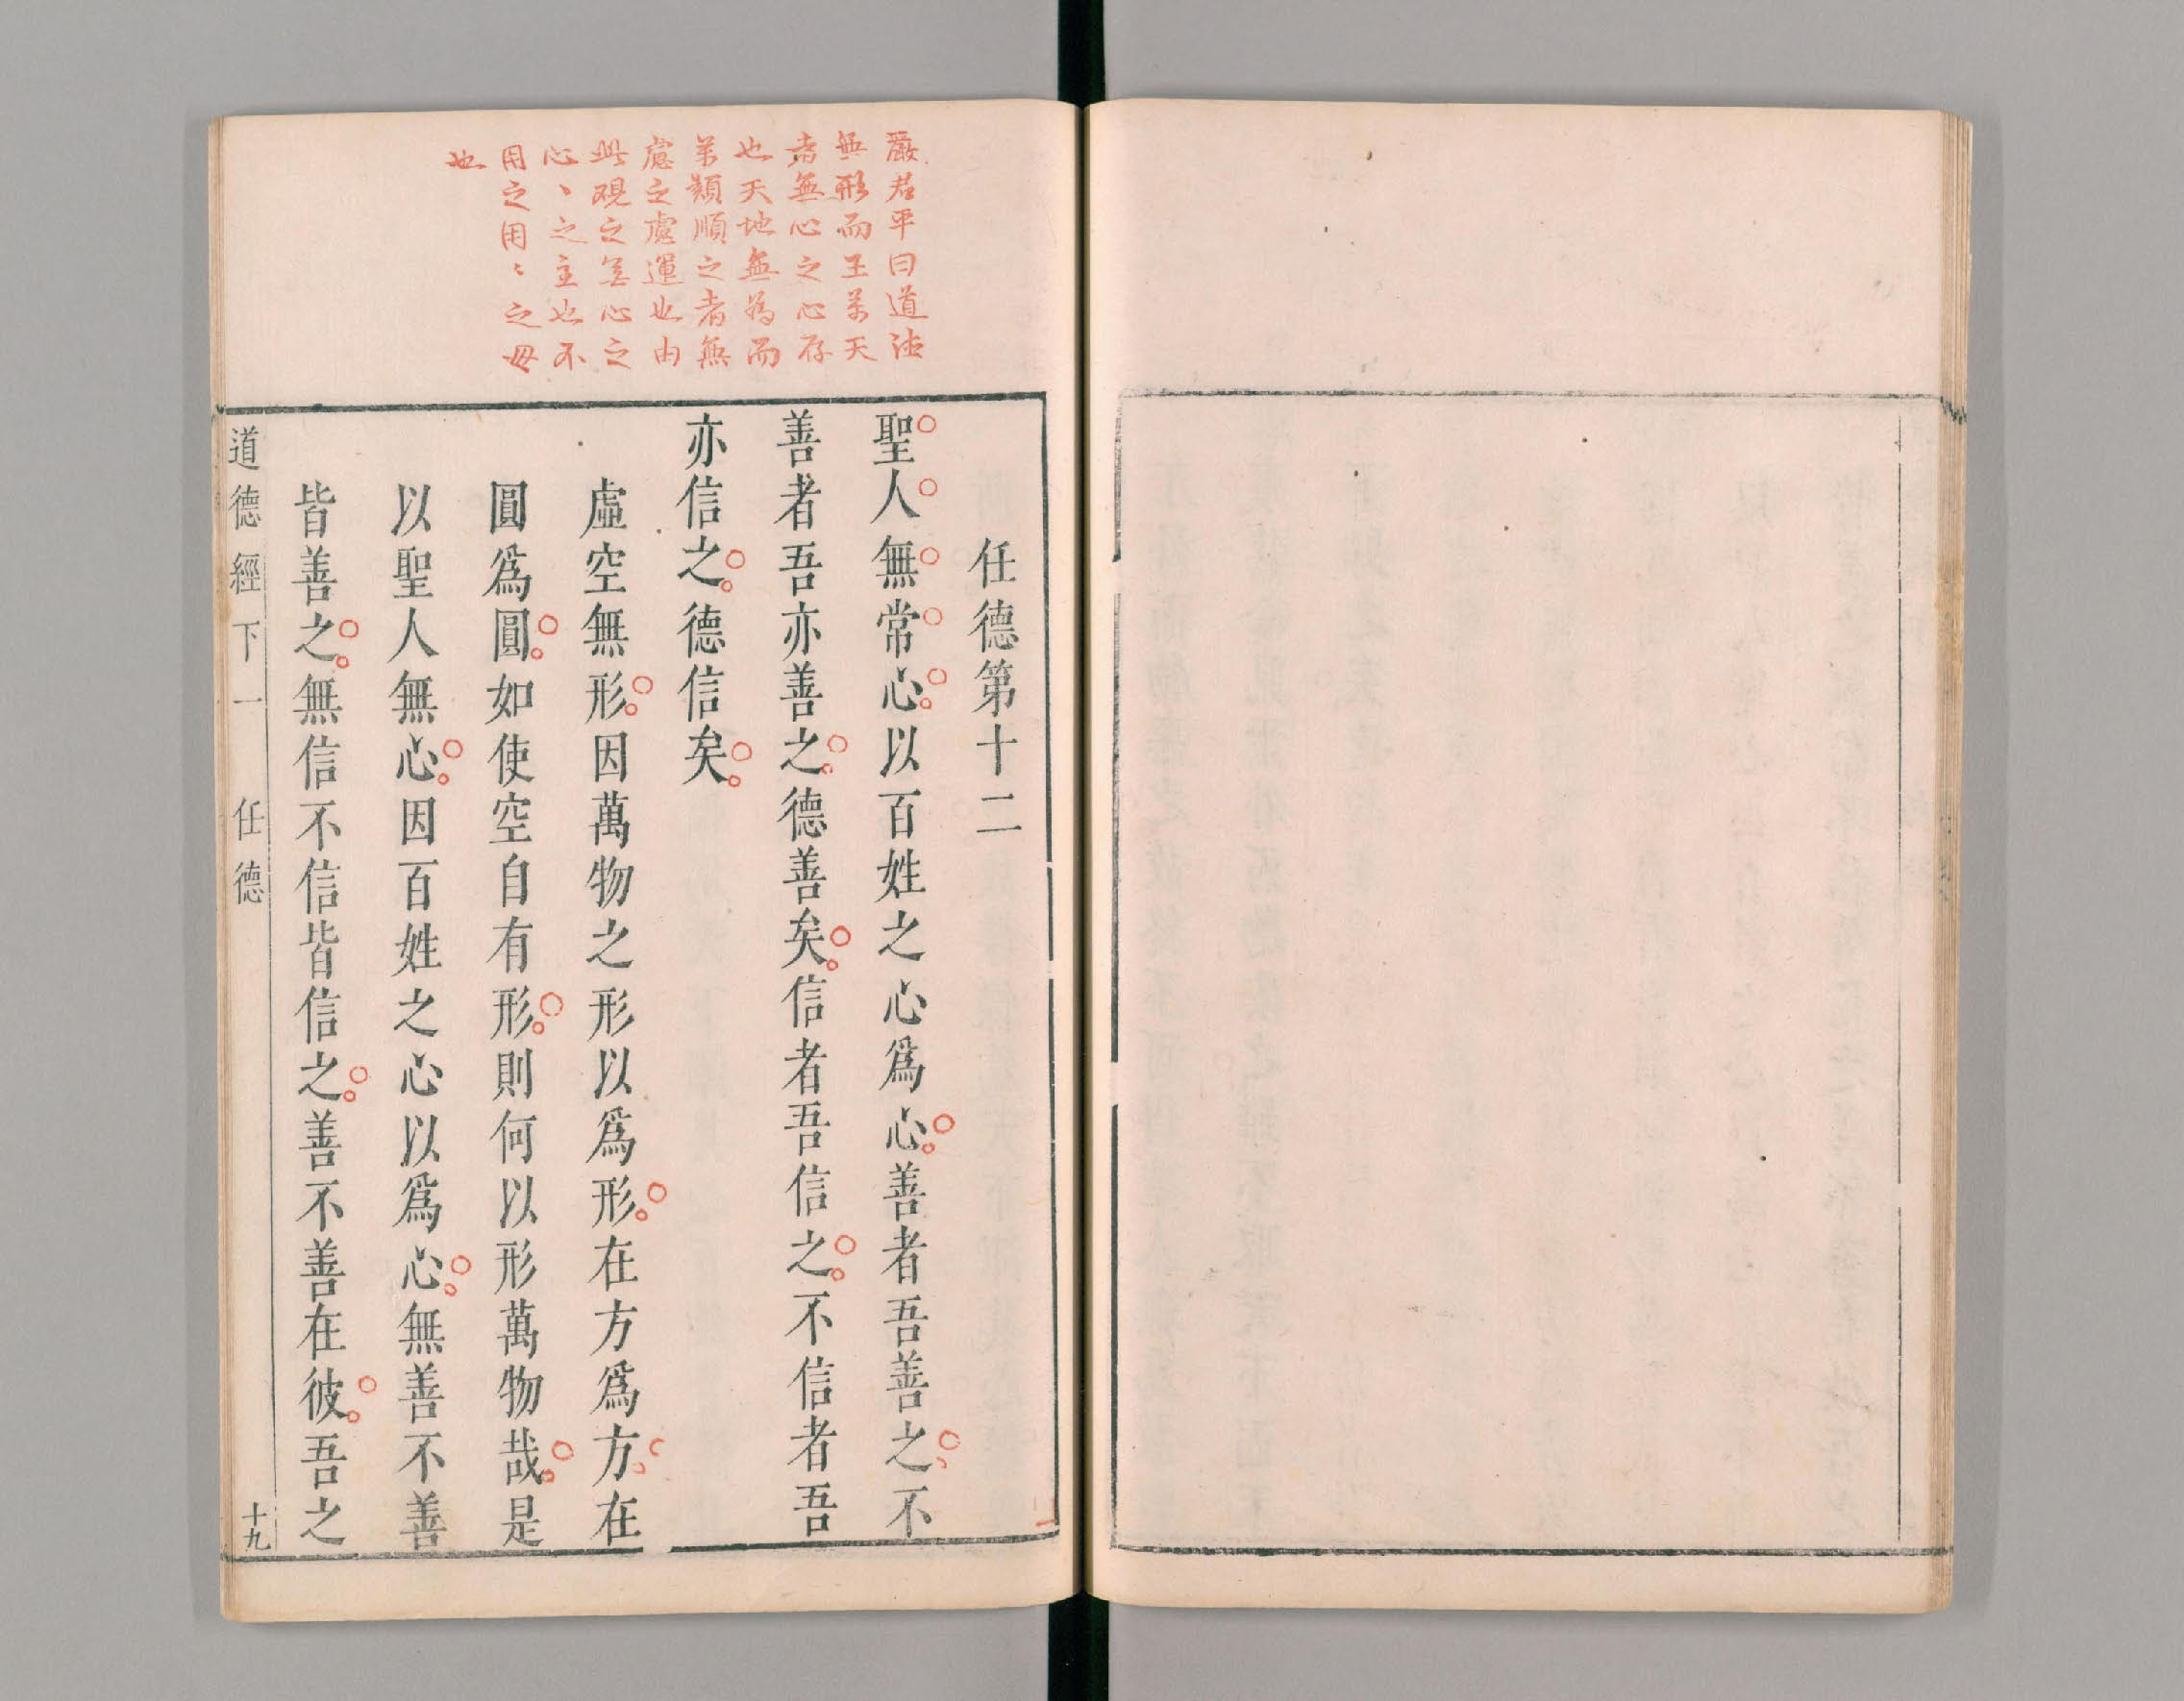 嚴君平曰道德
無形而王萬天
者無心之心存
也天地無為而
萬類順之者無
慮之慮運也由
此觀之無心之
心、之主也不
用之用〻之母
也
任德第十二
聖人無常心。以百姓之心爲心。善者吾善之。不
善者吾亦善之。德善矣。信者吾信之。不信者吾
亦信之。德信矣。
虛空無形。因萬物之形以爲形。在方爲方。在
圓爲圓。如使空自有形。則何以形萬物哉。是
以聖人無心。因百姓之心以爲心。無善不善
皆善之。無信不信皆信之。善不善在彼。吾之
道德經下一 任德 十九